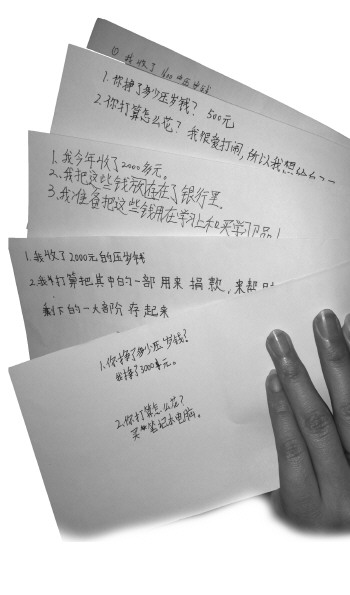 ① 我收了400
1.你挣了多少压岁钱? 500元
2.你打算怎么花? 我很爱打闹,所以我想
1.我今年收了2000多元。
2.我把这些钱放存在了银行里
3.我准备把这些钱用在学习上和买学习用品!
1.我收了2000元的压岁钱
2.我打算把其中的一部 用来 捐款,来帮
剩下的一大部分 存起来
1.你挣了多少压岁钱?
我挣了3000 元。
2.你打算怎么花?
买 笔记本电脑。